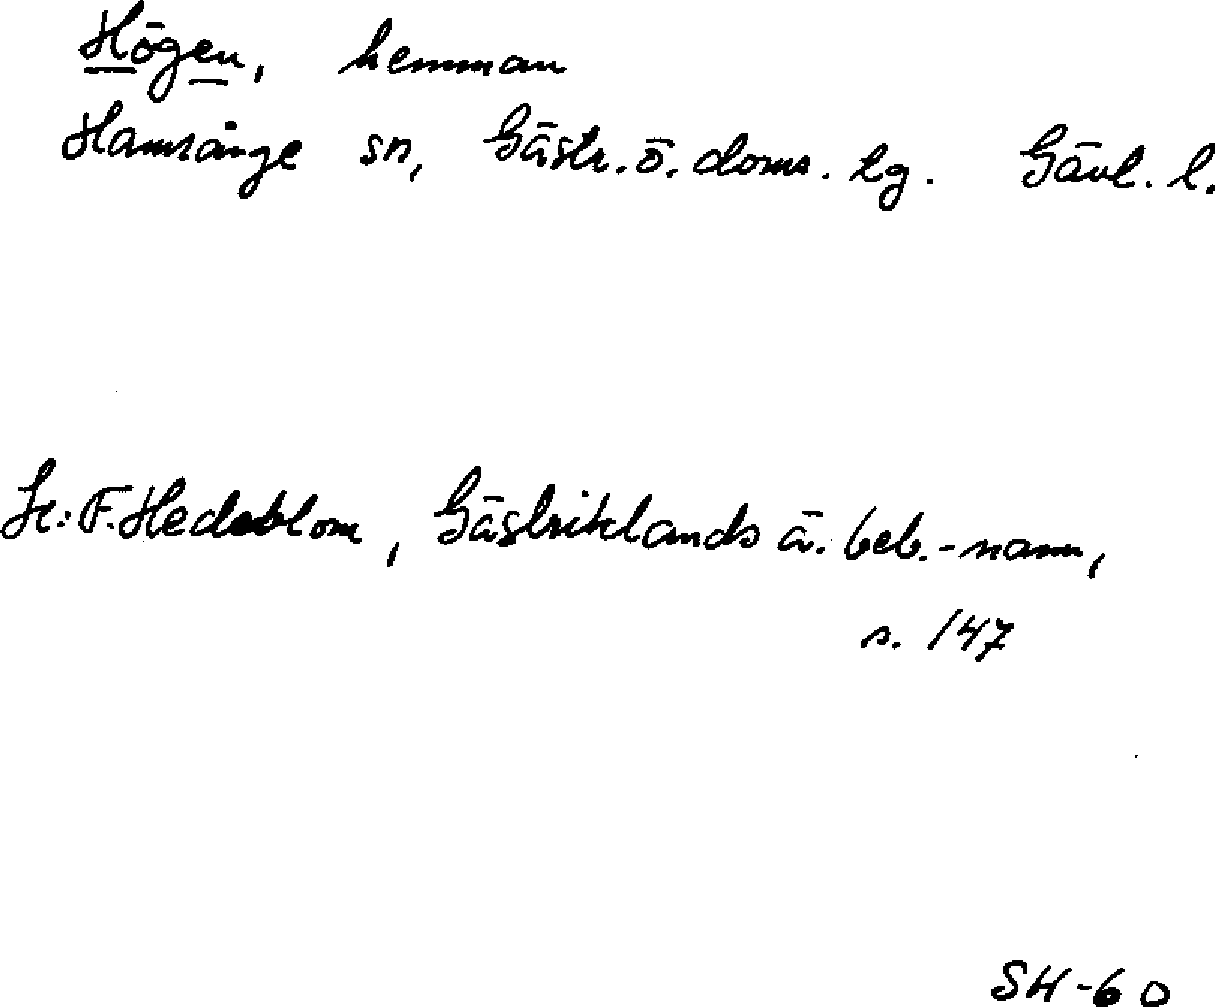 Högen, hemman
Hamrånge sn, Gästr. ö. doms. lg. Gävl. l.
Se: F. Hedblom, Gästriklands ä. beb.-namn,
s. 147
SH-60